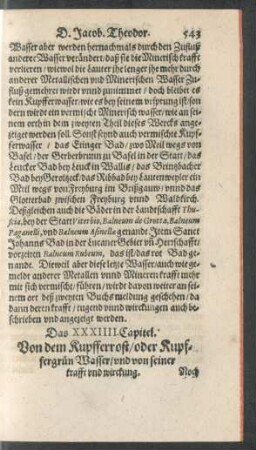 D. Jacob. Theodor. 543
Wasser aber werden hernachmals durch den Zufluß
anderer Wasser verändert / daß sie die Minerisch krafft
verlieren / wiewol die lauter ihe lenger ihe mehr durch
anderer Metallischen vnd Minerischen Wasser Zu-
fluß gemehret wirdt vnnd zunimmet / doch bleibet es
kein Kupfferwasser / wie es bey seinem vrsprung ist / son
dern wirdt ein vermischt Minerisch wasser / wie an sei-
nem orth in dem zweyten Theil dieses Wercks ange-
zeiget werden soll. Sonst seynd auch vermischte Kupf-
ferwasser / das Etinger Bad / zwo Meil wegs von
Basel / der Gerberbrunn zu Basel in der Statt / das
Leucker Bad bey Leuck in Wallis / das Brinzbacher
Bad bey Gerolzeck / das Kibbad bey Lautenweyler ein
Meil wegs von Freyburg im Brißgaw / vnnd das
Glotterbad zwischen Freyburg vnnd Waldkirch.
Deßgleichen auch die Bäder in der landtschafft Thu-
scia, bey der Statt Viterbio, Balneum de Grotta, Balneum
Paganelli, vnd Balneum Asinelle genandt. Item Sanct
Johanns Bad in der Lucaner Gebiet vñ Herrschafft
vorzeiten Balneum Rubeum, das ist / das rot Bad ge-
nandt. Dieweil aber diese letzte Wasser / auch wie ge-
meldt anderer Metallen vnnd Mineren krafft mehr
mit sich vermischt / führen / wirdt davon weiter an sei-
nem ort deß zweyten Buchs meldung geschehen / da
dann deren krafft / tugend vnnd wirckungen auch be-
schrieben vnd angezeigt werden.
Das XXXIIII. Capitel.
Von dem Kupfferrost / oder Kupf-
fergrün Wasser / vnd von seiner
krafft vnd wirckung.
Noch